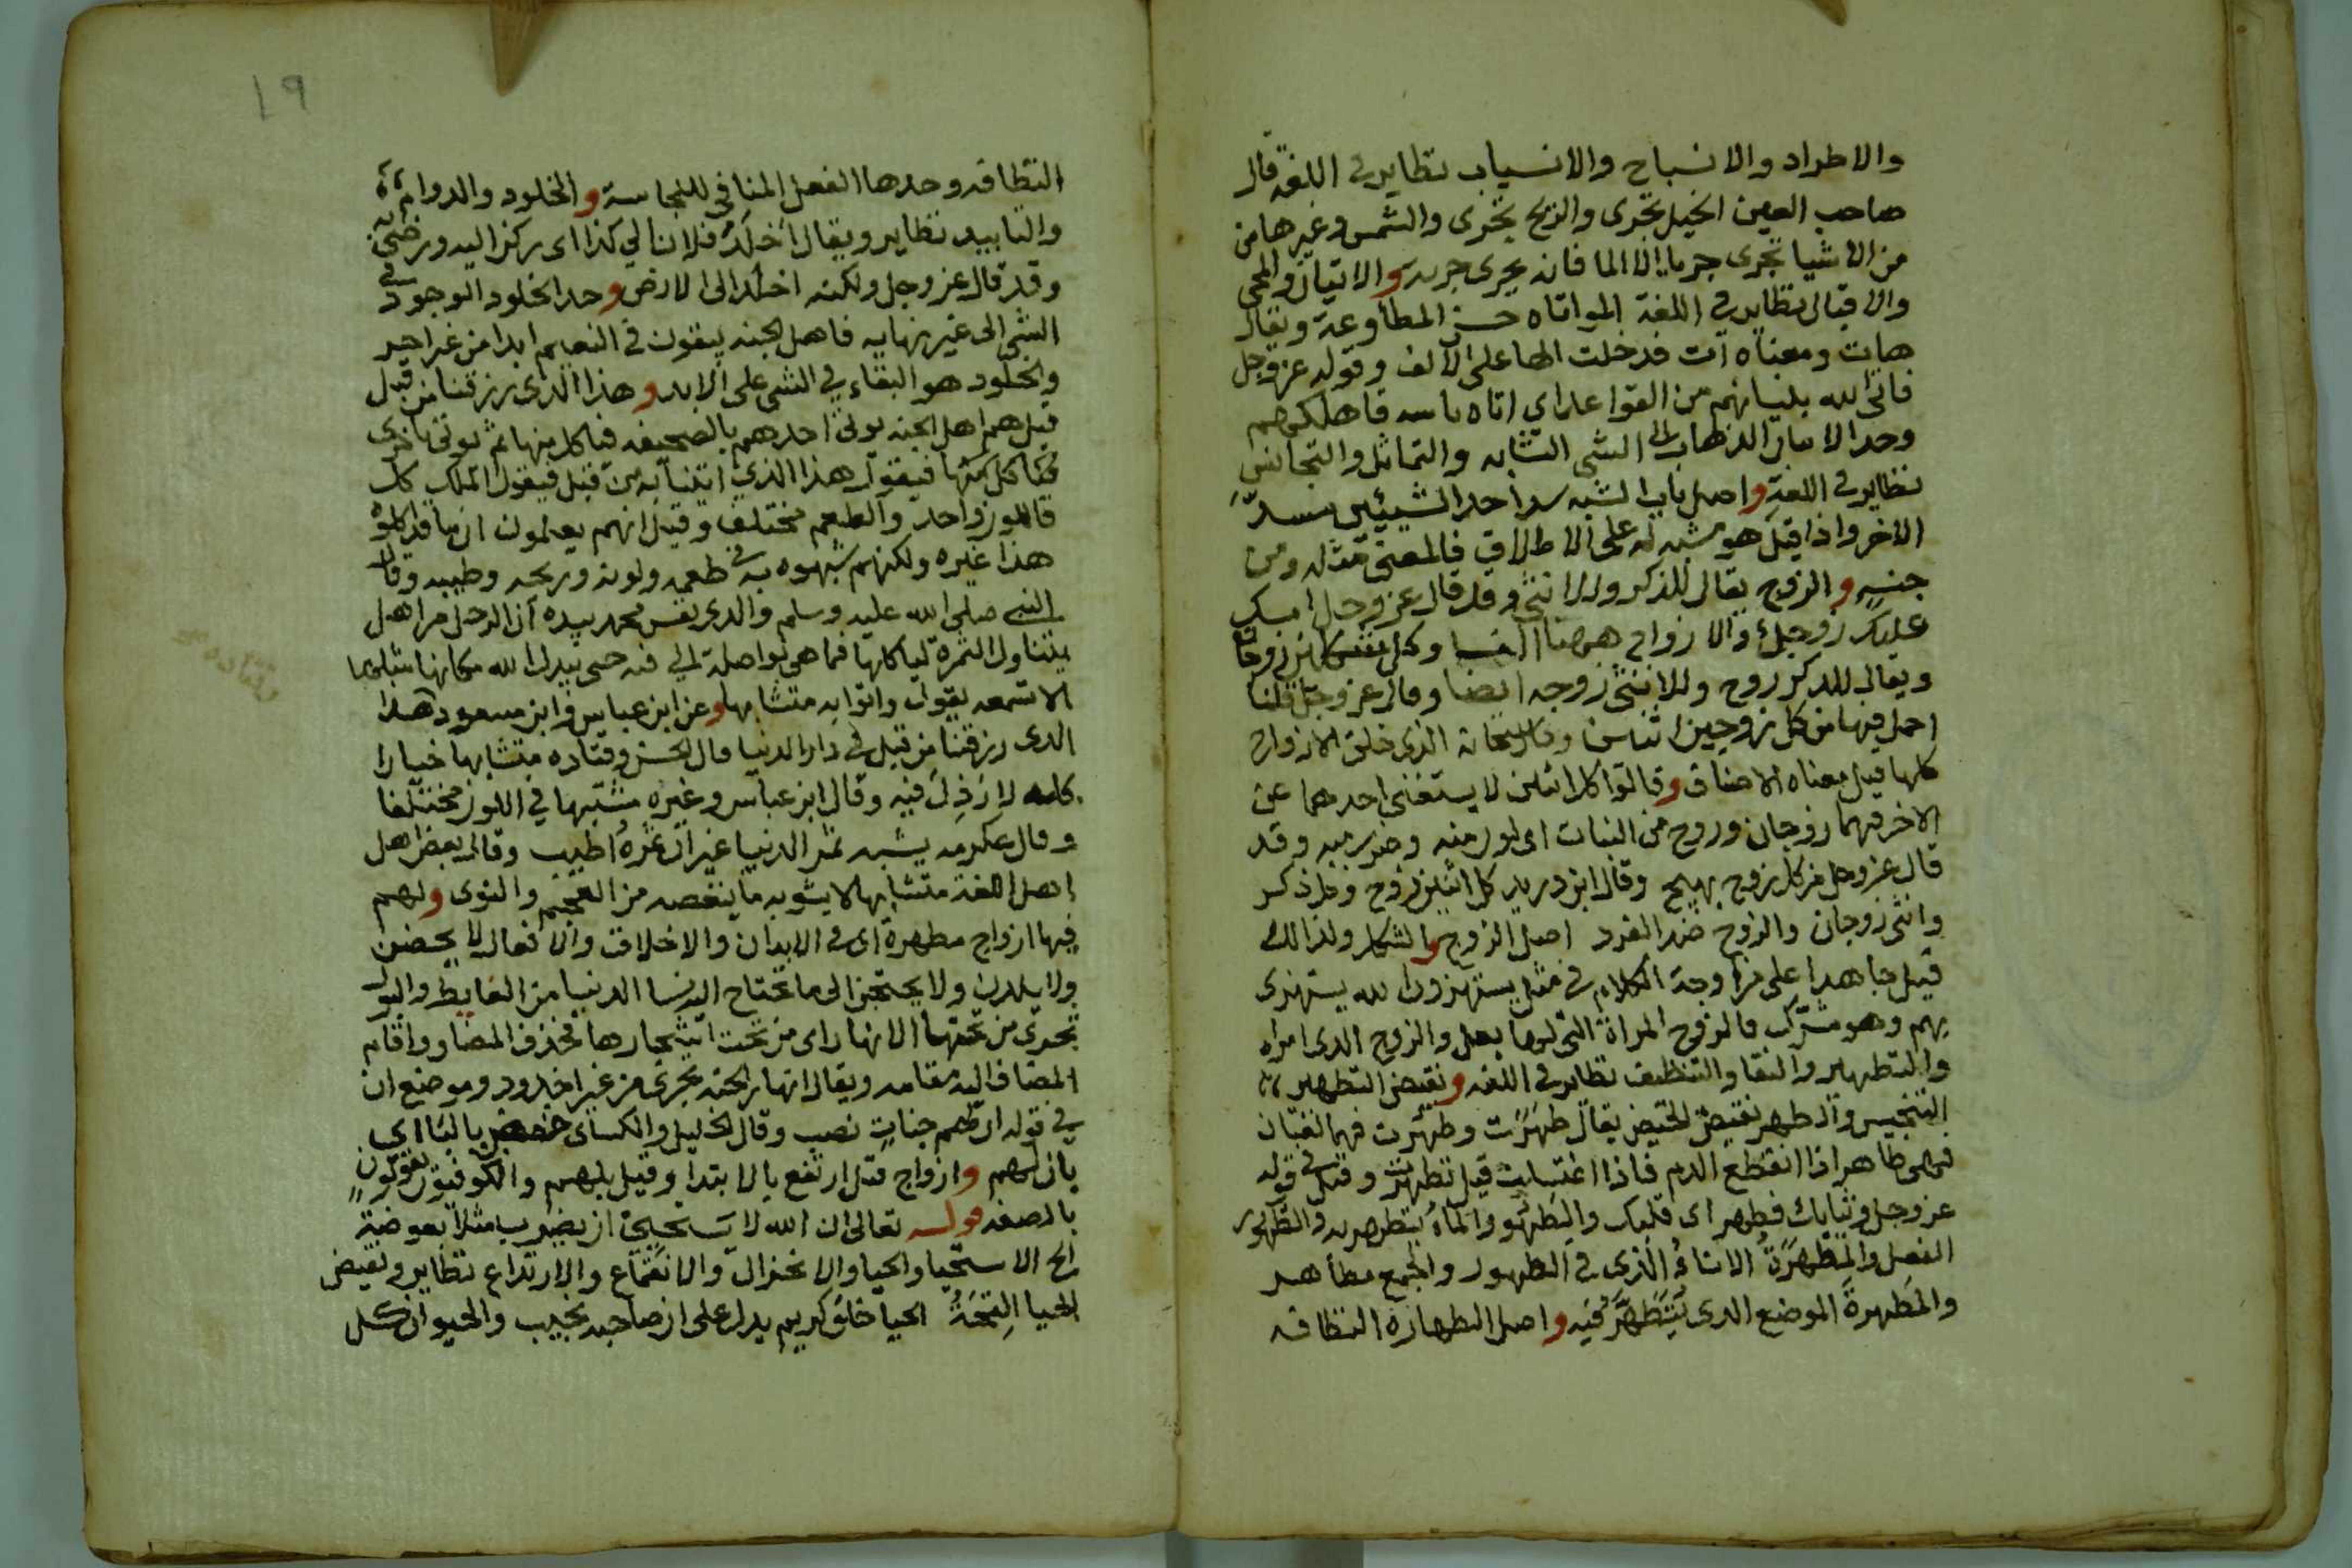 والاطراد والانسباح والانسياب نظاير في اللغة قال
صاحب العين الخيل تجرى والريح تجرى والشمس وغيرها من
من الاشيا تجرى جريا الا الما فانه يجرى جريه والاتيان والمجى
والاقبال نظاير في اللغة المواتاه حسن المطاوعة ويقال
هات ومعناه آت فدخلت الها على الالف وقوله عز وجل
فاتى الله بنيانهم من القواعد اي اتاه باسه فاهلكهم
وحد الاتيان الذهاب الى الشي التشابه والتماثل والتجانس
نظاير في اللغة واصل باب الشبه سد احد الشيئين مسدّ
الاخر واذا قيل هو شبه له على الاطلاق فالمعنى مثله ومن
جنسه والزوج يقال للذكر وللانثى وقد قال عز وجل امسك
عليك زوجك والازواج هاهنا النسا وكل نفس كانت زوجا
ويقال للذكر زوج وللانثى زوجه ايضا وقال عز وجل قلنا
احمل فيها من كل زوجين اثنين وقال سبحانه الذى خلق الازواج
كلها قيل معناه الاصناف وقالوا كل اثنين لا يستغنى احدهما عن
الاخر فهما زوجان وزوج من النبات اى لون منه وضرب منه وقد
قال عز وجل من كل زوج بهيج وقال ابن دريد كل اثنين زوج وكل ذكر
وانثى زوجان والزوج ضد الفرد اصل الزوج والشكل ولذالك
قيل جا هذا على مزاوجة الكلام في مثل يستهزون الله يستهزى
بهم وهو مشترك فالزوج المراة التى لها بعل والزوج الذى امراه
والتطهير والنقا والتنظيف نظاير في اللغه ونقيض التطهير
التنجيس والطهر نقيض الحيض يقال طهَرَت وطهُرت فهما لغتان
فهى طاهر اذا انقطع الدم فاذا اغتسلت قيل تطهرت وقيل في قوله
عز وجل وثيابك فطهر اى قلبك والتطهُّر والماءُ يتطهر به والطَّهور
الفعل والمِطهَرَةُ الاناءُ الذى في الطهور والجمع مطاهر
والمَطهرةَ الموضع الذى يُتَطَهَّرُ فيَه واصل الطهارة النظافه
١٩
النظافه وحدها الفعل المنافي للنجاسة والخلود والدوام
والتابيد نظاير ويقال اَخلَدَ فلان الي كذا اى ركن اليه ورضى به
وقد قال عز وجل ولكنه اخلد الى الارض وحد الخلود الوجود في
الشي الى غير نهايه فاهل الجنه يبقون في النعيم ابدا من غير اخير
والخلود هو البقاء في الشى على الابد وهذا الذى رزقنا من قبل
قيل هم اهل الجنه يوتى احدهم بالصحيفه فياكل منها ثم يوتى باخرى
فياكل منها فيقول هذا الذي اتينا به من قبل فيقول الملك كل
فاللون واحد والطعم مختلف وقيل انهم يعلمون ان ما قد اكلوه
هذا غيره ولكنهم شبهوه به في طعمه ولونه وريحه وطيبه وقال
النبي صلى الله عليه وسلم والذى نفس محمد بيده ان الرجل من اهل
يتناول الثمرة لياكلها فما هى بواصلة الي فيه حتى يبدل الله مكانها مثلها
الا تسمعه يقول واتوا به متشابها وعن ابن عباس وابن مسعود هذا
الذى رزقنا من قبل في دار الدنيا قال الحسن وقتاده متشابها خيارا
كله لا رَذِلَ فيه وقال ابن عباس وغيره مشتبها في اللون مختلفا
وقال عكرمه يشبه ثمر الدنيا غير ان ثمره اطيب وقال بعض اهل
اهل اللغة متشابها لا يشوبه ما ينغصه من العجم والنوى ولهم
فيها ازواج مطهرة اى في الابدان والاخلاق والافعال لا يحضن
ولا يلدن ولا يحتجن الى ما تحتاج اليه نسا الدنيا من الغايط والبول
تجرى من تحتها الانهار اى من تحت اشجارها فحذف المضاف واقام
المضاف اليه مقامه ويقال انهار الجنه تجرى من غير اخدود وموضع ان
في قوله ان لهم جناتٍ نصب وقال الخليل والكساى خفض بالبا اي
بان لهم وازواج قيل ارتفع بالابتدا وقيل بلهم والكوفيون يقولون
بالصفه قولـه تعالى ان الله لا يَستَحيىَ ان يضرب مثلاً بعوضةً
الخ الاستحيا والحيا والانخزال والانقماع والارتداع نظاير ونقيض
الحيا القِحَةُ الحيا خلَق كريم يدل على ان صاحبه نجيب والحيوان كل
وقتاده